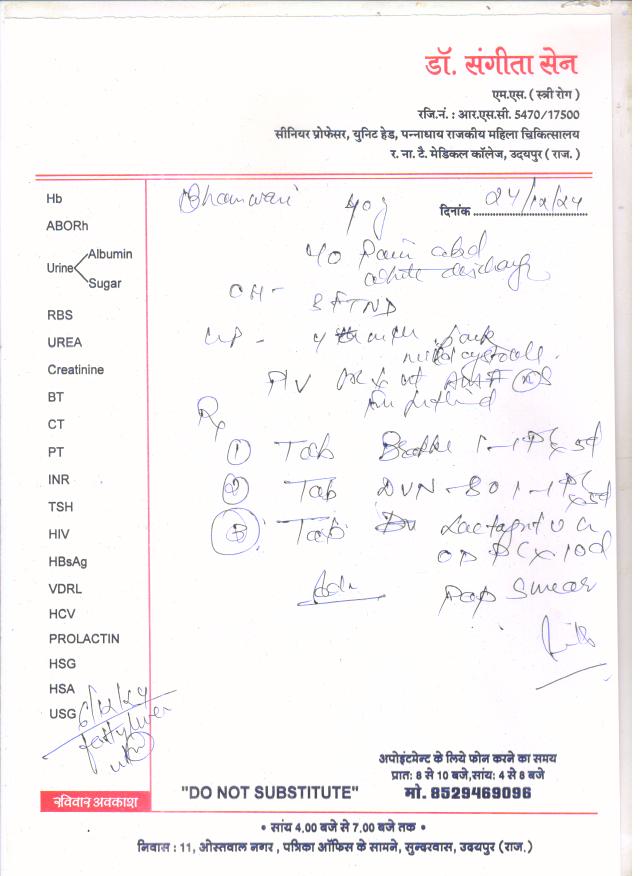 डॉ. संगीता सेन
एम.एस. ( स्त्री रोग )
रजि.नं. : आर.एस.सी. 5470/17500
सीनियर प्रोफेसर, युनिट हेड, पन्नाधाय राजकीय महिला चिकित्सालय
र. ना. टै. मेडिकल कॉलेज, उदयपुर ( राज. )
Bhanwari 40y दिनांक 24/12/24
Pain abd
white discharge
OH -
3 FTND
Rx
① Tab 1-1 PC x 5d
② Tab DVN-80 1-1 PC x 5d
③ Tab
OD PC x 10d
Adv Pap Smear
Hb
ABORh
Urine Albumin
Sugar
RBS
UREA
Creatinine
BT
CT
PT
INR
TSH
HIV
HBsAg
VDRL
HCV
PROLACTIN
HSG
HSA
USG 6/12/24
fatty liver
रविवार अवकाश
"DO NOT SUBSTITUTE"
अपोइंटमेन्ट के लिये फोन करने का समय
प्रात: 8 से 10 बजे,सांय: 4 से 8 बजे
मो. 8529469096
• सांय 4.00 बजे से 7.00 बजे तक •
निवास : 11, ओस्तवाल नगर , पत्रिका ऑफिस के सामने, सुन्दरवास, उदयपुर (राज.)